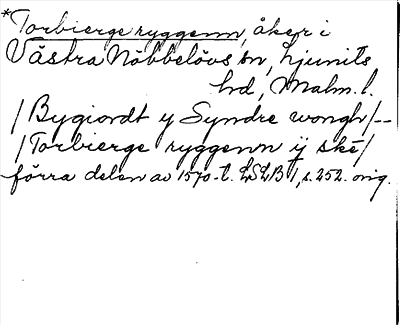 *Torbierge ryggenn, åker i
Västra Nöbbelövs sn, Ljunits
hd, Malm. l.
/ Bygiordt y Syndre wongh/--
/ Torbierge ryggenn ij ske/
förra delen av 1570-t. LSLB 1, s. 252. orig.